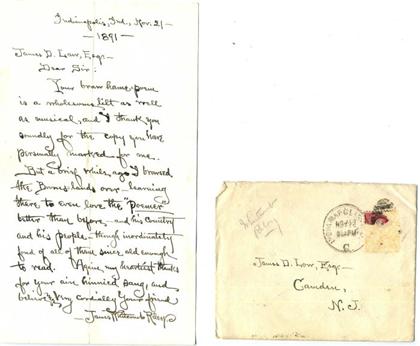 Indianapolis, Ind., Nov. 21 —
— 1891 —
James D. Law, Esq. —
Dear Sir:
Your braw hame-poem
is a wholesome lilt as well
as musical, and I thank you
soundly for the copy you have
personally marked for me.
But a brief while ago I browsed
the Burns lands over — learning
there to even love the Poemer
better than before — and his Country
and his people — though inordinately
fond of all of them since old enough
to read. Again my heartiest thanks
for your ain hinnied sang, and
believe me, Very cordially Your friend
— James Whitcomb Riley
James D. Law, Esq. —
Camden,
N. J.